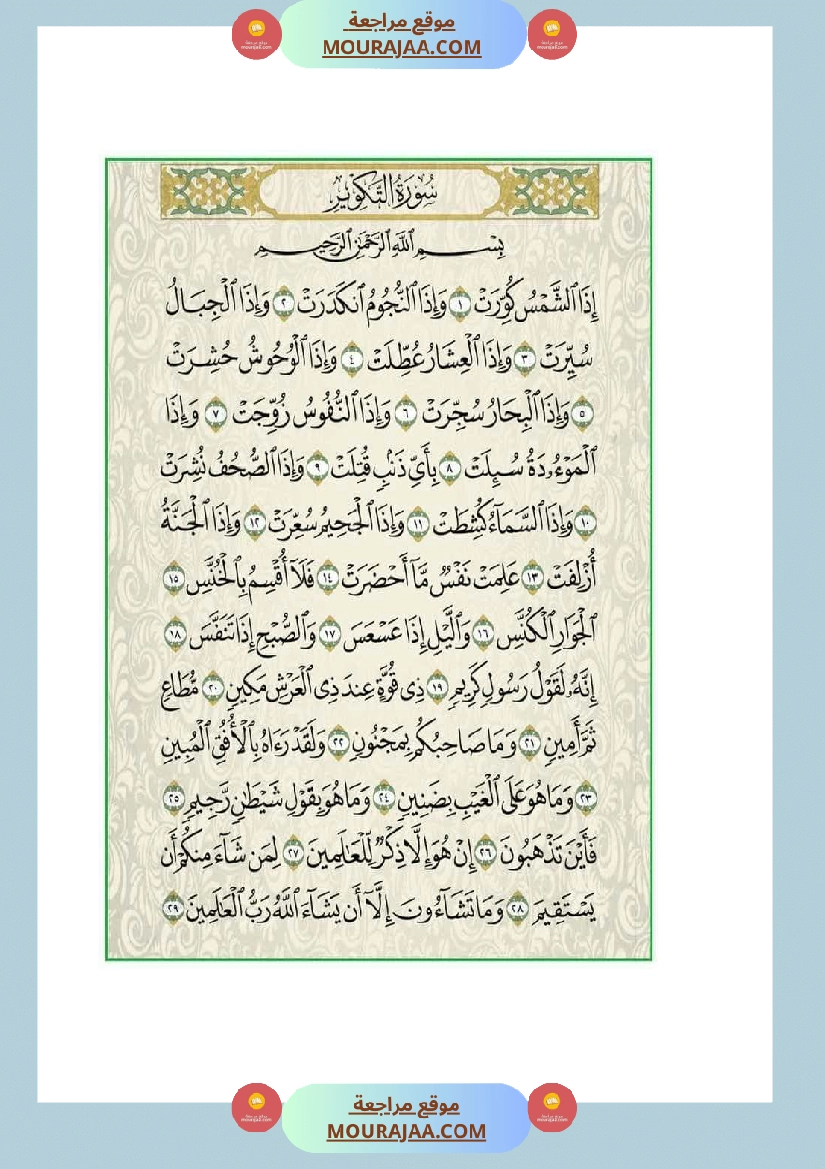 موقع مراجعة
MOURAJAA.COM
سُورَةُ التَّكْوِيرِ
بِسْمِ ٱللَّهِ ٱلرَّحْمَٰنِ ٱلرَّحِيمِ
إِذَا ٱلشَّمْسُ كُوِّرَتْ ١ وَإِذَا ٱلنُّجُومُ ٱنكَدَرَتْ ٢ وَإِذَا ٱلْجِبَالُ
سُيِّرَتْ ٣ وَإِذَا ٱلْعِشَارُ عُطِّلَتْ ٤ وَإِذَا ٱلْوُحُوشُ حُشِرَتْ
٥ وَإِذَا ٱلْبِحَارُ سُجِّرَتْ ٦ وَإِذَا ٱلنُّفُوسُ زُوِّجَتْ ٧ وَإِذَا
ٱلْمَوْءُۥدَةُ سُئِلَتْ ٨ بِأَىِّ ذَنۢبٍ قُتِلَتْ ٩ وَإِذَا ٱلصُّحُفُ نُشِرَتْ
١٠ وَإِذَا ٱلسَّمَآءُ كُشِطَتْ ١١ وَإِذَا ٱلْجَحِيمُ سُعِّرَتْ ١٢ وَإِذَا ٱلْجَنَّةُ
أُزْلِفَتْ ١٣ عَلِمَتْ نَفْسٌ مَّآ أَحْضَرَتْ ١٤ فَلَآ أُقْسِمُ بِٱلْخُنَّسِ ١٥
ٱلْجَوَارِ ٱلْكُنَّسِ ١٦ وَٱلَّيْلِ إِذَا عَسْعَسَ ١٧ وَٱلصُّبْحِ إِذَا تَنَفَّسَ ١٨
إِنَّهُۥ لَقَوْلُ رَسُولٍ كَرِيمٍ ١٩ ذِى قُوَّةٍ عِندَ ذِى ٱلْعَرْشِ مَكِينٍ ٢٠ مُّطَاعٍ
ثَمَّ أَمِينٍ ٢١ وَمَا صَاحِبُكُم بِمَجْنُونٍ ٢٢ وَلَقَدْ رَءَاهُ بِٱلْأُفُقِ ٱلْمُبِينِ
٢٣ وَمَا هُوَ عَلَى ٱلْغَيْبِ بِضَنِينٍ ٢٤ وَمَا هُوَ بِقَوْلِ شَيْطَٰنٍ رَّجِيمٍ ٢٥
فَأَيْنَ تَذْهَبُونَ ٢٦ إِنْ هُوَ إِلَّا ذِكْرٌ لِّلْعَٰلَمِينَ ٢٧ لِمَن شَآءَ مِنكُمْ أَن
يَسْتَقِيمَ ٢٨ وَمَا تَشَآءُونَ إِلَّآ أَن يَشَآءَ ٱللَّهُ رَبُّ ٱلْعَٰلَمِينَ ٢٩
موقع مراجعة
MOURAJAA.COM